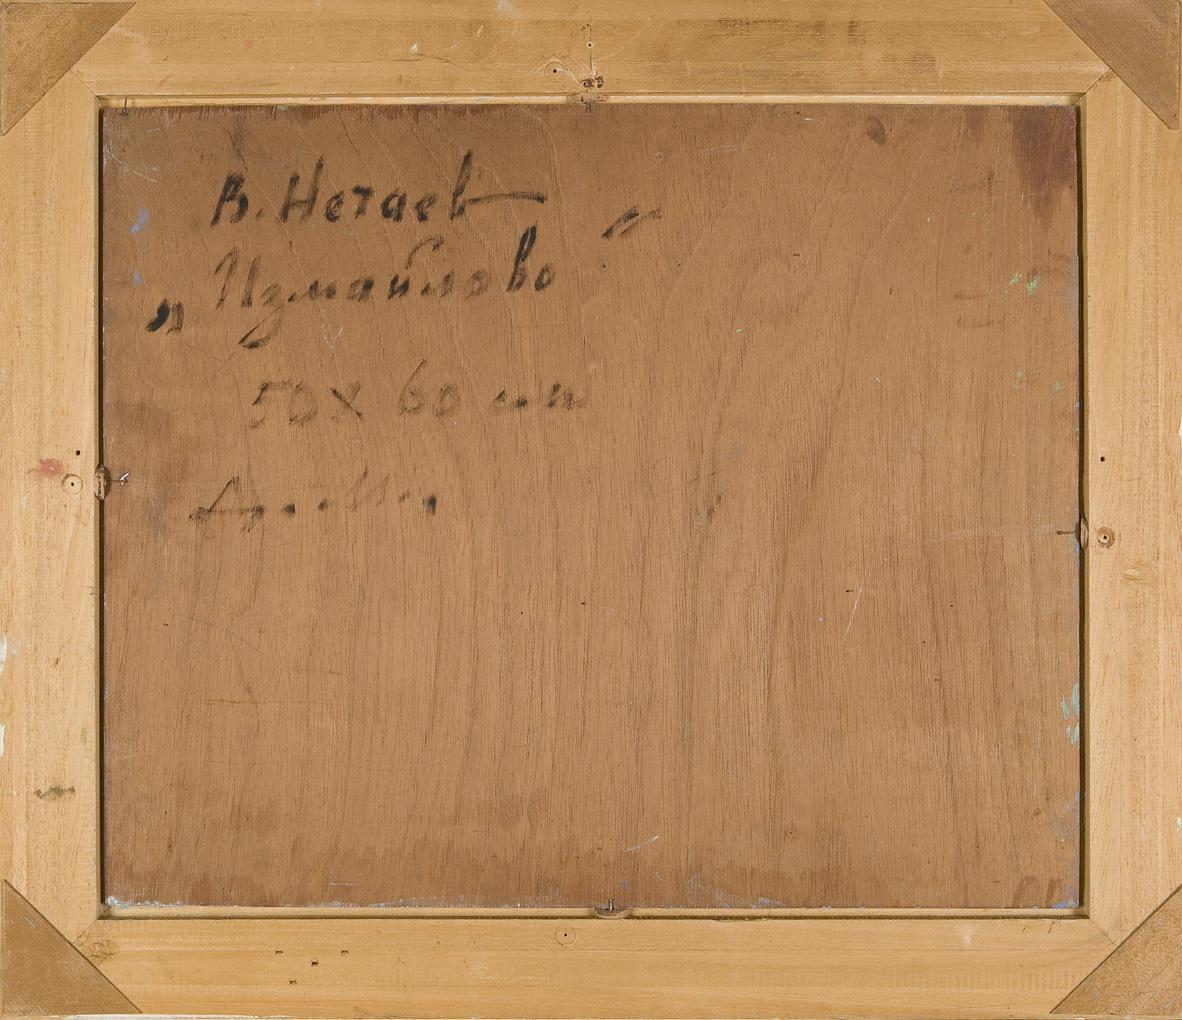 В. Нечаев
„Измайлово“
50х60 см